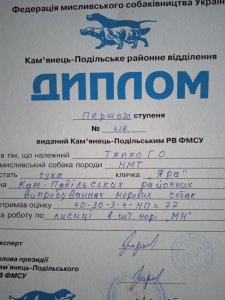 Федерація мисливського собаківництва Україн
Кам'янець-Подільське районне відділення
ДИПЛОМ
Першого ступеня
№ 418
виданий Кам'янець-Подільським РВ ФМСУ
в тім, що належний Тяпко Г.О.
мисливський собака породи НМТ
стать сука кличка „Яра"
на Кам-Подільських районних
випробуваннях норових собак
отримав оцінку 40-30-3-4-НП= 77
за роботу по лисиці в шт. норі „МН"
Експерт
олова президії
Кам'янець-Подільського
РВ ФМСУ